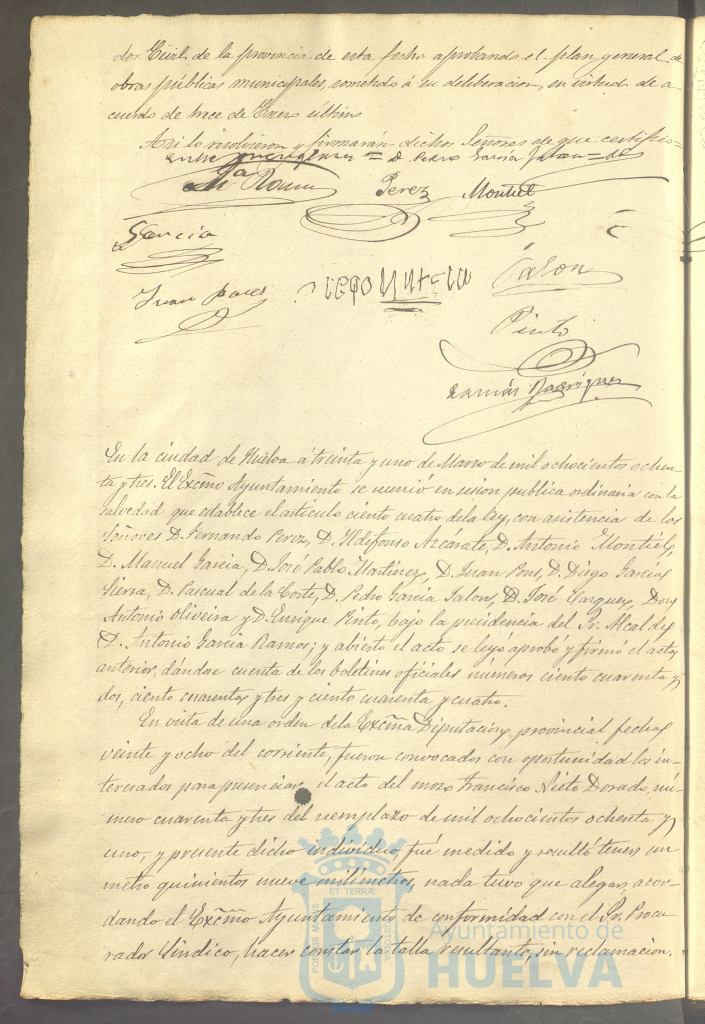 dor Civil de la provincia de esta fecha aprobando el plan general de
obras públicas municipales, sometido á su deliberacion, en virtud de a-
cuerdo de trece de Enero último
Asi lo resolvieron y firmarán dichos Señores de que certifico=
entre = D. Pedro Garcia Jalon = de
Perez Montiel
Garcia
Juan Pons Diego Garcia Jalon
Pinto
Ramón Rodriguez
En la ciudad de Huelva á treinta y uno de Marzo de mil ochocientos ochen
ta y tres. El Excmo Ayuntamiento se reunió en sesion publica ordinaria con la
salvedad que establece el artículo ciento cuatro de la ley, con asistencia de los
Señores D. Fernando Perez, D. Ildefonso Azcárate, D. Antonio Montiel,
D. Manuel Garcia, D. José Pablo Martinez, D. Juan Pons, D. Diego Garcia
Sierra, D. Pascual de la Corte, D. Pedro Garcia Jalon, D. José Vazquez, Don
Antonio Oliveira y D. Enrique Pinto, bajo la presidencia del Sr. Alcalde
D. Antonio Garcia Ramos; y abierto el acto se leyó aprobó y firmó el acta
anterior, dándose cuenta de los boletines oficiales números ciento cuarenta y
dos, ciento cuarenta y tres y ciento cuarenta y cuatro.
En vista de una orden de la Excma Diputacion provincial fecha
veinte y ocho del corriente, fueron convocados con oportunidad los in-
teresados para presenciar el acto del mozo Francisco Nieto Dorado, nú-
mero cuarenta y tres del reemplazo de mil ochocientos ochenta y
uno, y presente dicho individuo, fué medido y resultó tener un
metro quinientos nueve milímetros, nada tuvo que alegar, acor-
dando el Excmo Ayuntamiento de conformidad con el Sr. Procu-
rador Síndico, hacer constar la talla resultante, sin reclamacion.
Ayuntamiento de
HUELVA